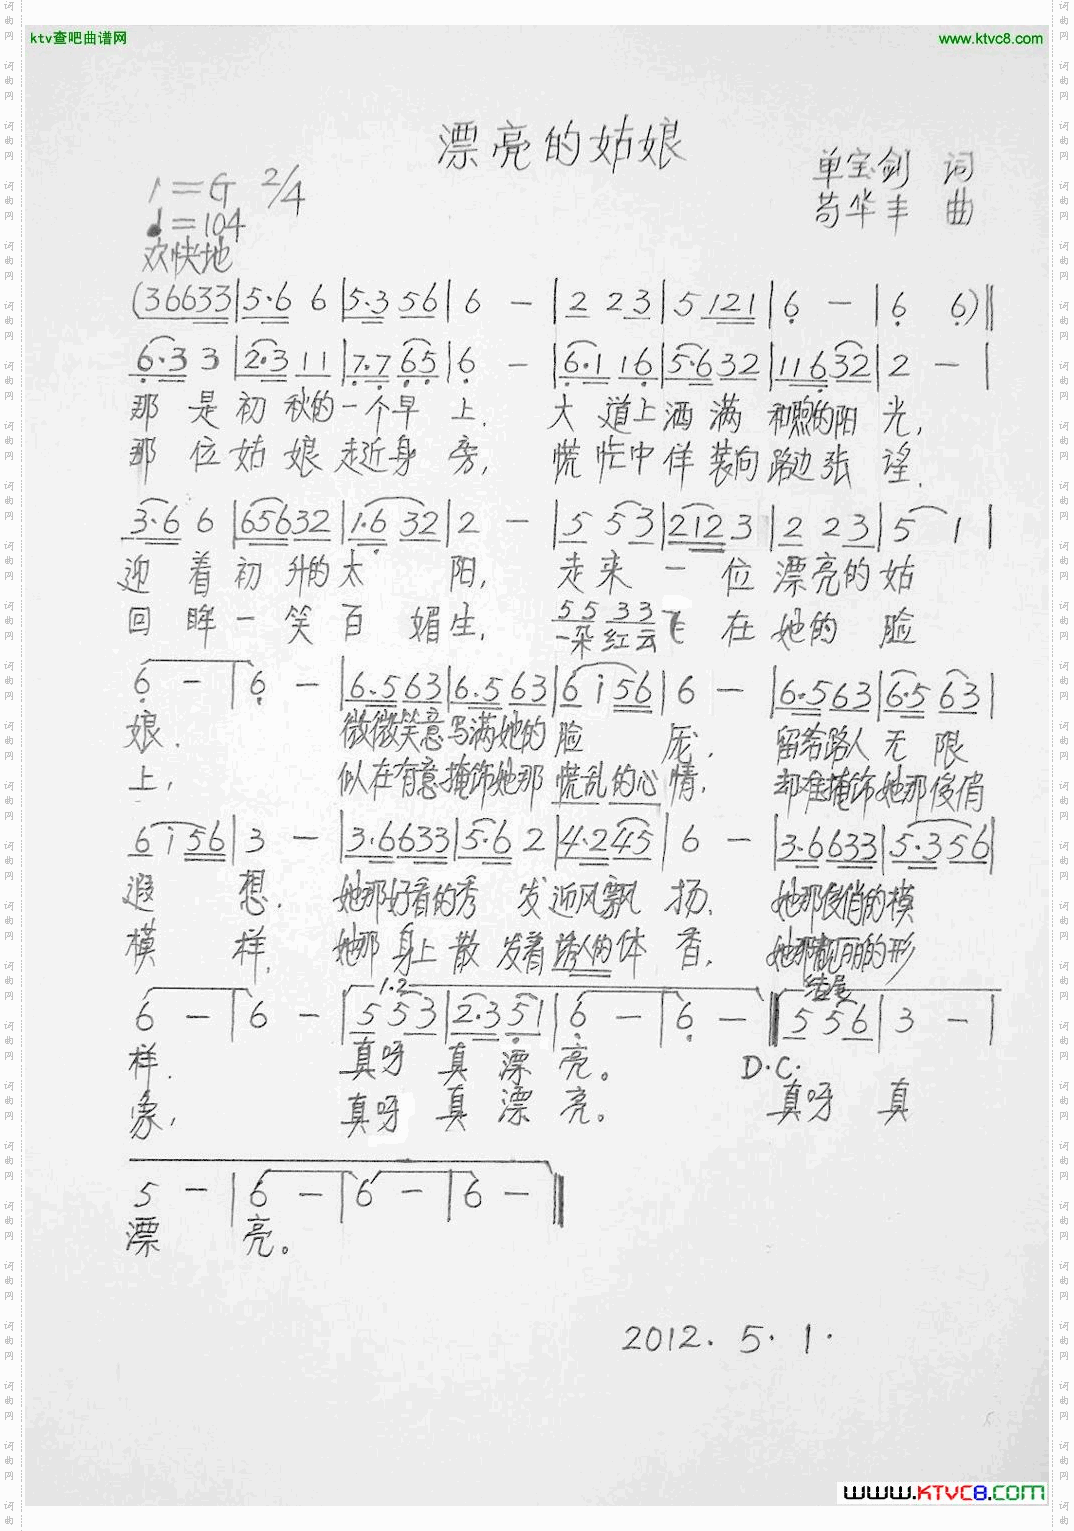 ktv查吧曲谱网
www.ktvc8.com
漂亮的姑娘
1=G 2/4
单宝剑 词
♩=104
苟华丰 曲
欢快地
(36633|5·6 6|5·3 56|6 -|2 2 3|5 121|6 -|6 6)‖
6·3 3|2·3 11|7·7 65|6 -|6·1 16|5·632|11632|2 -|
那 是 初 秋的一个早 上. 大 道上洒 满 和煦的阳 光,
那 位 姑 娘 走近身 旁, 慌 忙中佯 装向路边张 谣.
3·6 6|65632|1·6 32|2 -|5 5 3|212 3|2 2 3|5 1|
迎 着 初 升的太 阳, 走来 一 位 漂亮的 姑
5 5 3 3
回 眸 一 笑 百 媚生, 一朵红云飞 在 她的 脸
6 -|6 -|6.563|6.563|6 i 56|6 -|6·563|6·5 63|
娘. 微微笑意写满她的 脸 庞, 留给路人 无 限
上, 似在有意掩饰她那 慌乱的心 情, 却难掩饰她那俊俏
6 i 56|3 -|3·6633|5·6 2|4·245|6 -|3·6633|5·356|
遐 想. 她那好看的秀 发 迎风飘 扬, 她那俊俏的模
模 样, 她那 身上 散 发着 诱人的体 香, 她那靓丽的形
1.2 结尾
6 -|6 -|5 5 3|2·3 51|6 -|6 -‖5 5 6|3 -|
样. 真呀 真 漂 亮。 D·C·
象, 真呀 真 漂 亮。 真呀 真
5 -|6 -|6 -|6 -‖
漂 亮。
2012. 5. 1.
www.KTVC8.com